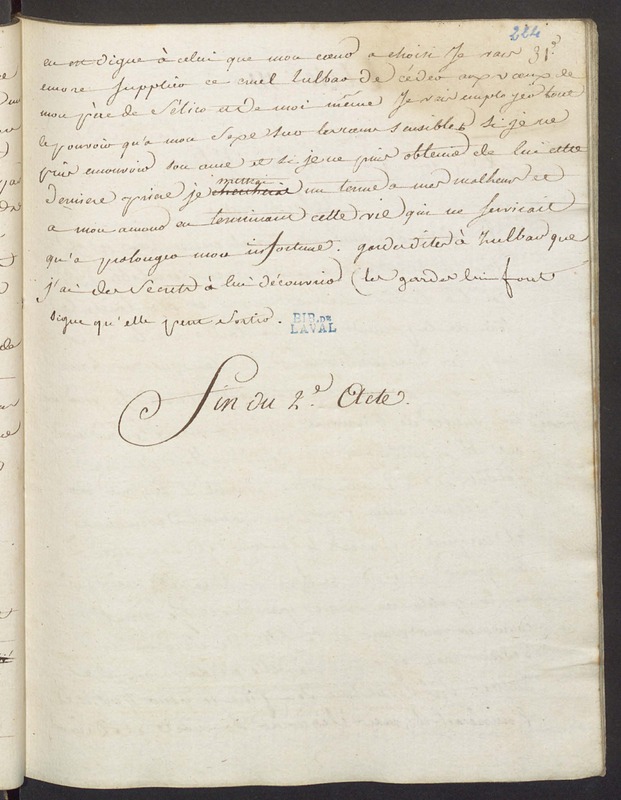 224
31.e
en est digne à celui que mon cœur a choisi Je vais
encore supplier ce cruel Zulbar de céder aux vœux de
mon père de Sélico et de moi même Je vais employer tout
le pouvoir qu'a mon Sexe sur les cœurs sensibles, si je ne
puis émouvoir son ame et si je ne puis obtenir de lui cette
derniere priere je mettrai un terme a mes malheurs et
a mon amour en terminant cette vie qui ne serviroit
qu'a prolonger mon infortune. gardes dites à Zulbar que
j'ai des Secrets à lui découvrir (les gardes lui font
signe qu'elle peut sortir.
BIB. DE
LAVAL
Fin du 2.e Acte.